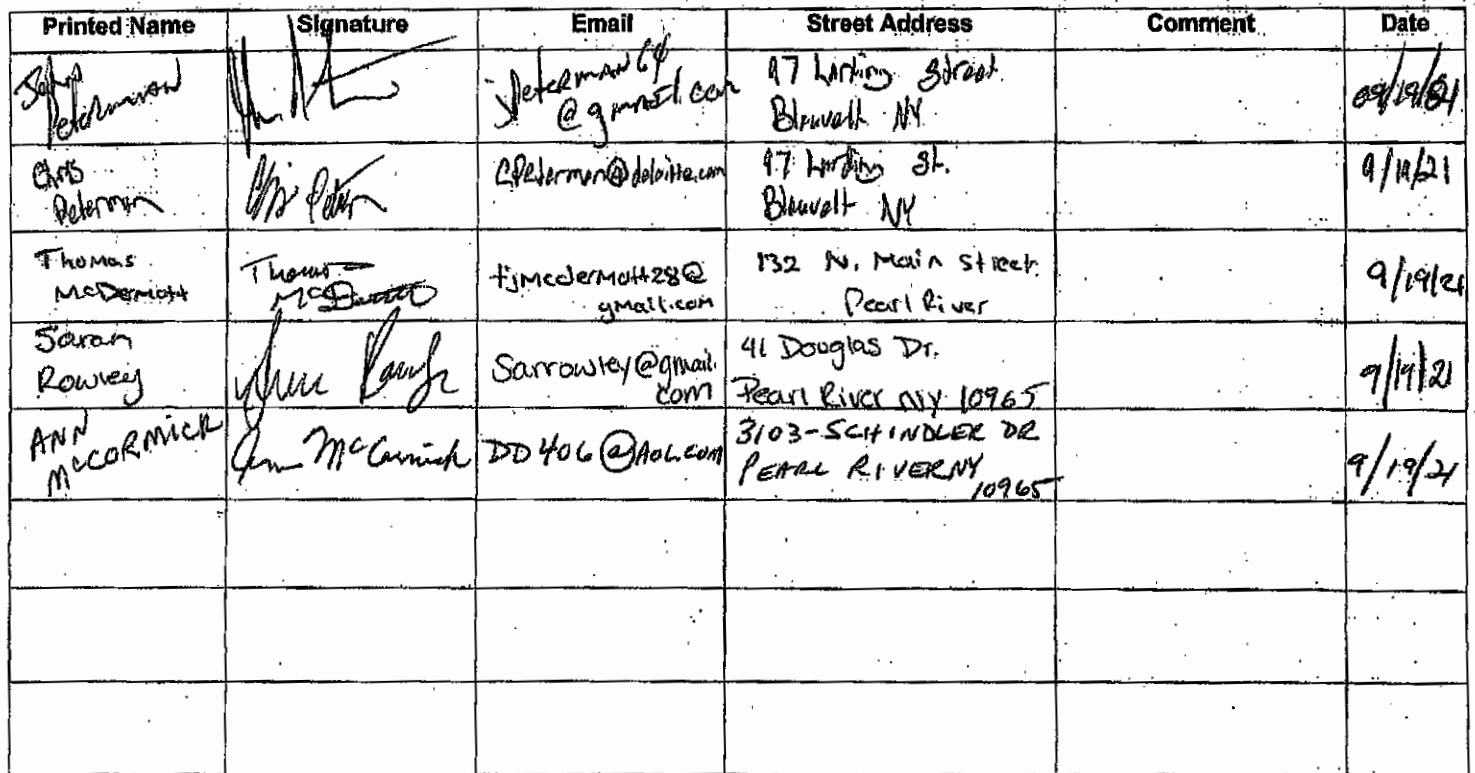 Printed Name Signature Email Street Address Comment Date
John
Peterman
jpeterman64
@gmail.com
97 Street
Blauvelt NY
09/19/21
Chris
Peterman
Chris Peter
CPeterman@deloitte.com
97 St.
Blauvelt NY
9/19/21
Thomas
McDermott
Thomas
McDermott
tjmcdermott28@
gmail.com
132 N. Main Street
Pearl River
9/19/21
Sarah
Rowley
Sarrowley@gmail.
com
41 Douglas Dr.
Pearl River NY 10965
9/19/21
ANN
McCORMICK
Ann McCormick
DD406@AOL.COM
3103-SCHINDLER DR
PEARL RIVER NY
10965
9/19/21